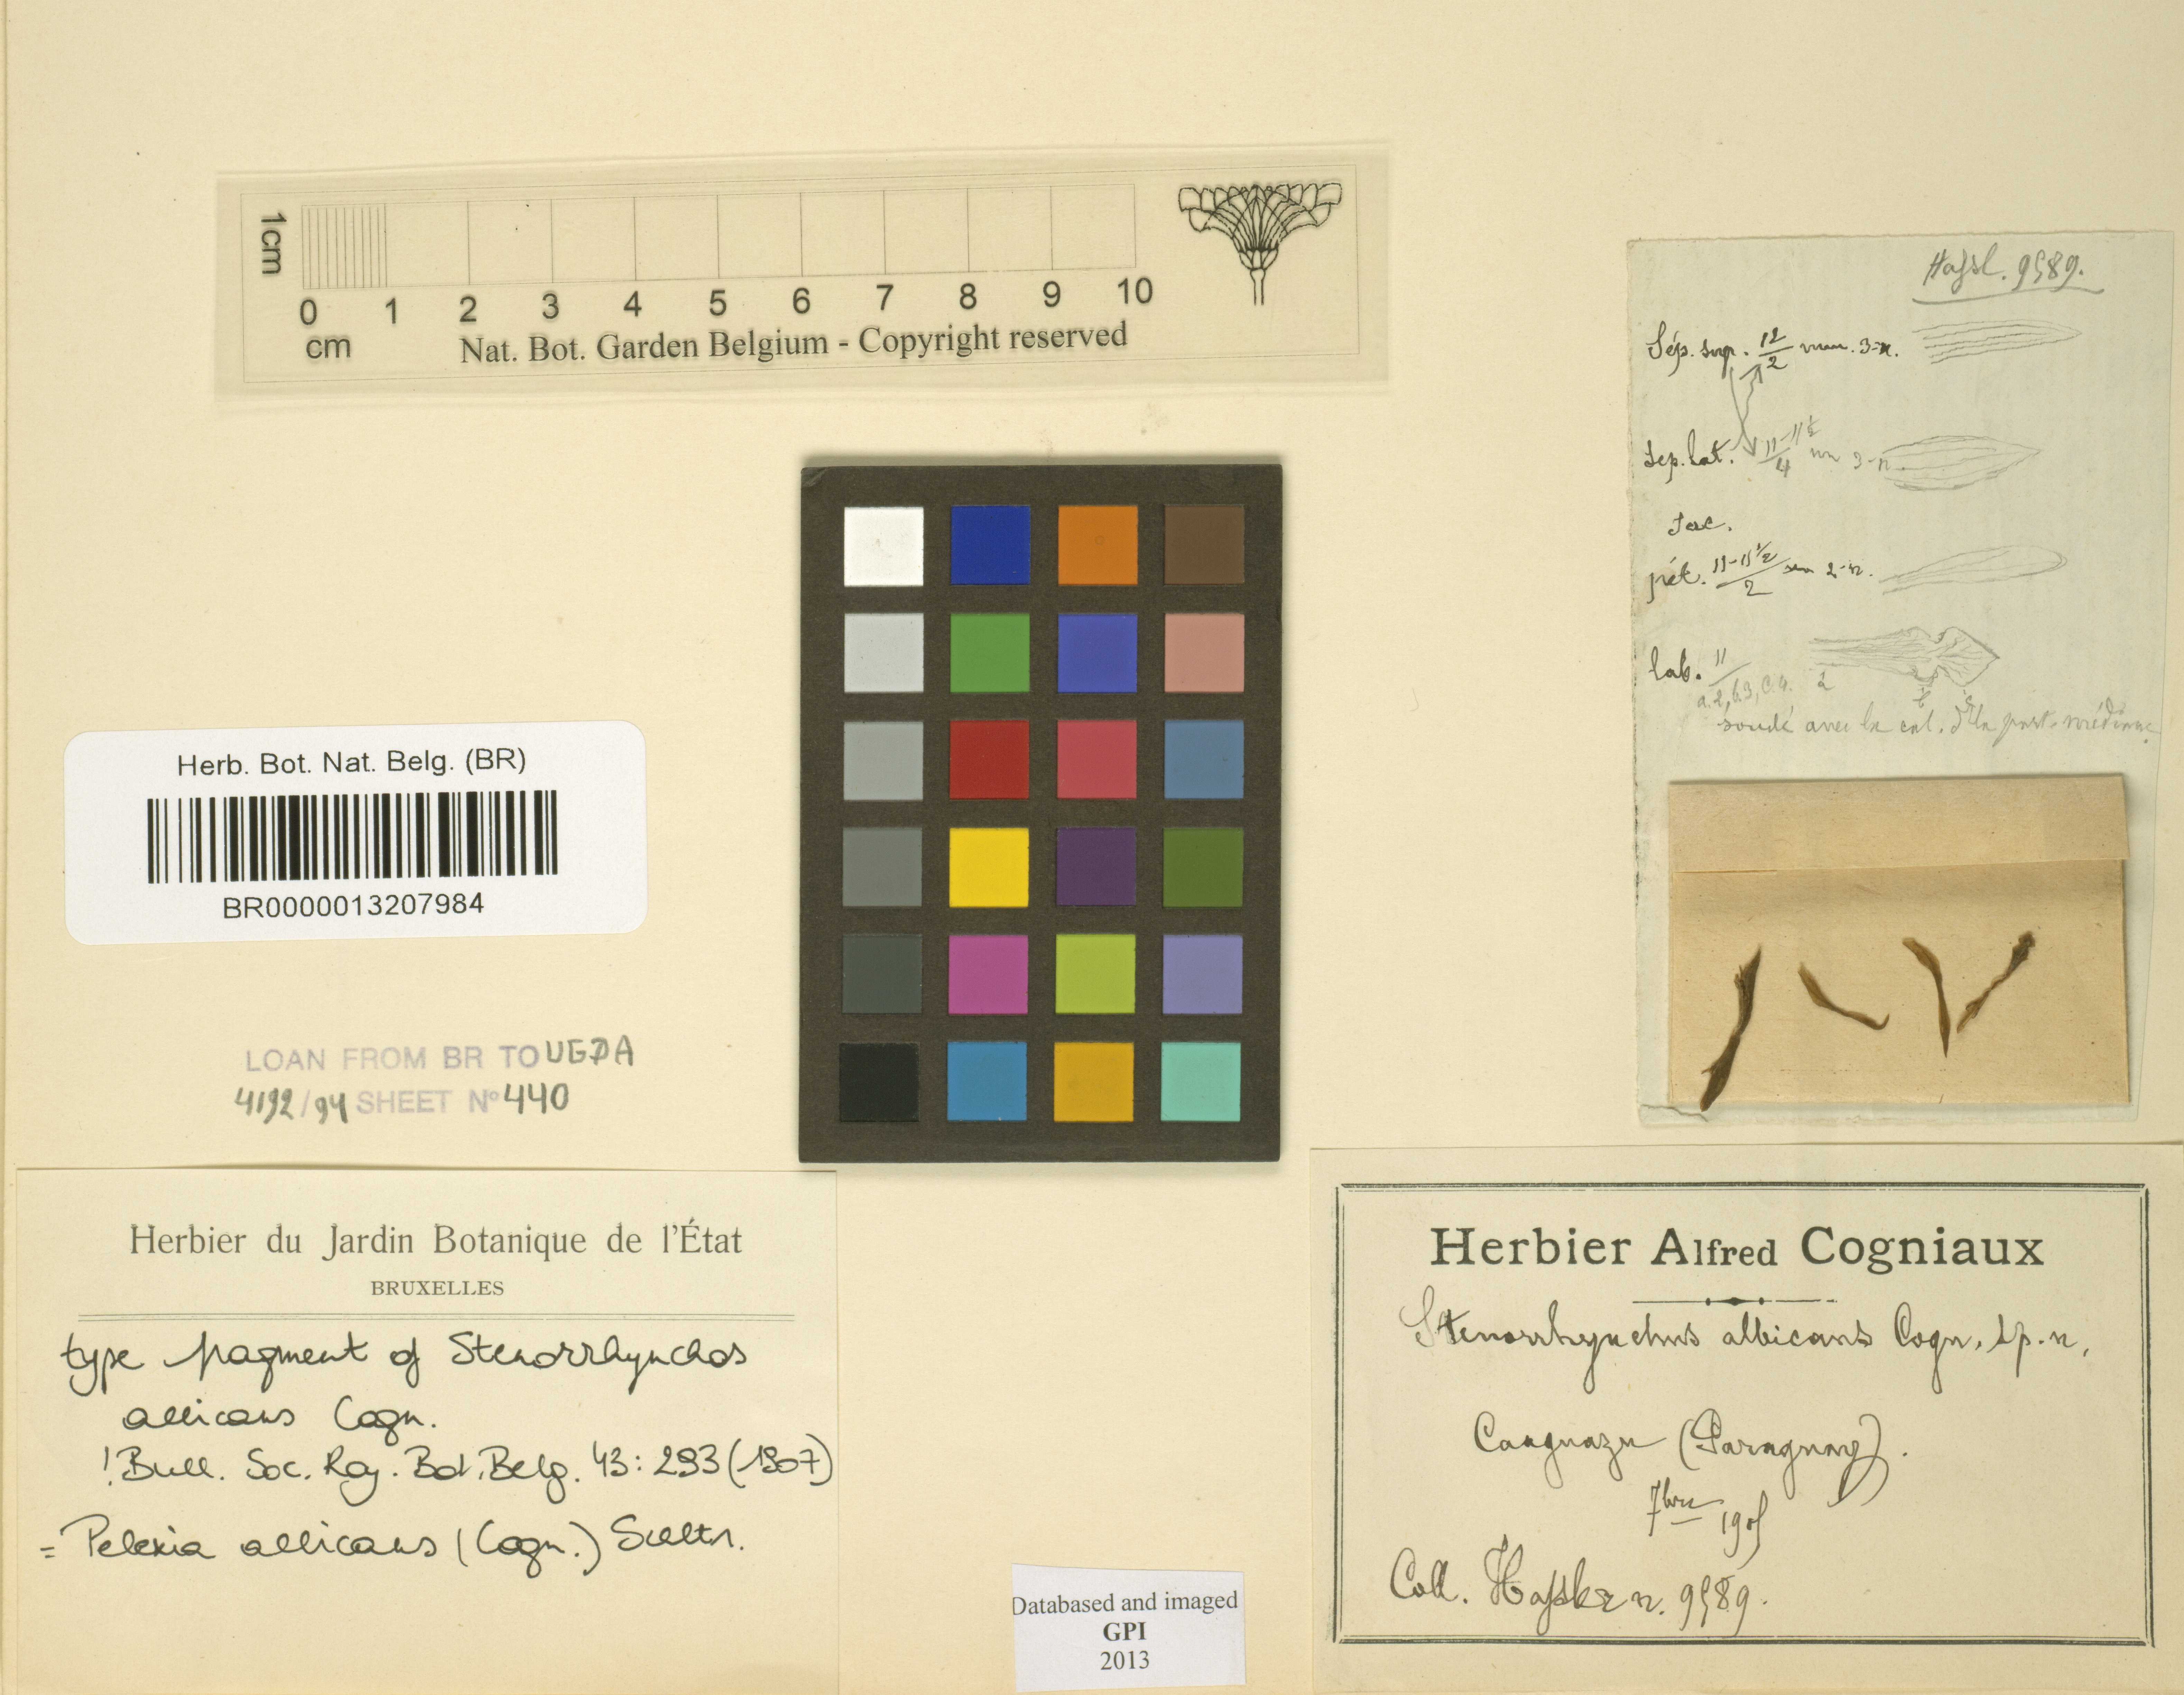 1cm
0 1 2 3 4 5 6 7 8 9 10
cm
Nat. Bot. Garden Belgium - Copyright reserved
Hassl. 9589.
Sép. sup. 12/2 mm. 3-n.
Sep. lat. 11-11½/4 mm 3-n.
pét. 11-11½/2 mm 2-n.
lab. 11/
a.2, b.3, c.4.
a b c
soudé avec la col. ds la part. médiane
Herb. Bot. Nat. Belg. (BR)
BR0000013207984
LOAN FROM BR TO UGDA
4192/94 SHEET Nº 440
Herbier du Jardin Botanique de l'État
BRUXELLES
type fragment of Stenorrhynchos
albicans Cogn.
! Bull. Soc. Roy. Bot. Belg. 43: 293 (1907)
= Pelexia albicans (Cogn.) Schltr.
Databased and imaged
GPI
2013
Herbier Alfred Cogniaux
Stenorrhynchus albicans Cogn. sp. n.
Caaguazu (Paraguay).
7bre 1905
Coll. Hassler n. 9589.